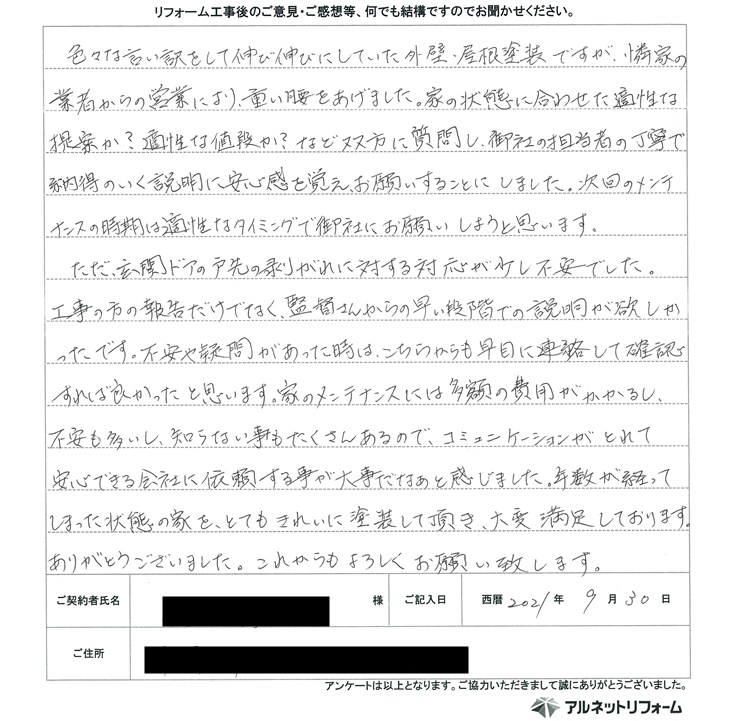 リフォーム工事後のご意見・ご感想等、何でも結構ですのでお聞かせください。
色々な言い訳をして伸び伸びにしていた外壁・屋根塗装ですが、隣家の
業者からの営業により、重い腰をあげました。家の状態に合わせた適性な
提案か?適性な値段か?など双方に質問し、御社の担当者の丁寧で
納得のいく説明に安心感を覚え、お願いすることにしました。次回のメンテ
ナンスの時期は適性なタイミングで御社にお願いしようと思います。
ただ、玄関ドアの戸先の剥がれに対する対応が少し不安でした。
工事の方の報告だけでなく、監督さんからの早い段階での説明が欲しか
ったです。不安や疑問があった時は、こちらからも早目に連絡して確認
すれば良かったと思います。家のメンテナンスには多額の費用がかかるし、
不安も多いし、知らない事もたくさんあるので、コミュニケーションがとれて
安心できる会社に依頼する事が大事だなあと感じました。年数が経って
しまった状態の家を、とてもきれいに塗装して頂き、大変満足しております。
ありがとうございました。これからもよろしくお願い致します。
ご契約者氏名 様 ご記入日 西暦 2021 年 9 月 30 日
ご住所
アンケートは以上となります。ご協力いただきまして誠にありがとうございました。
アルネットリフォーム